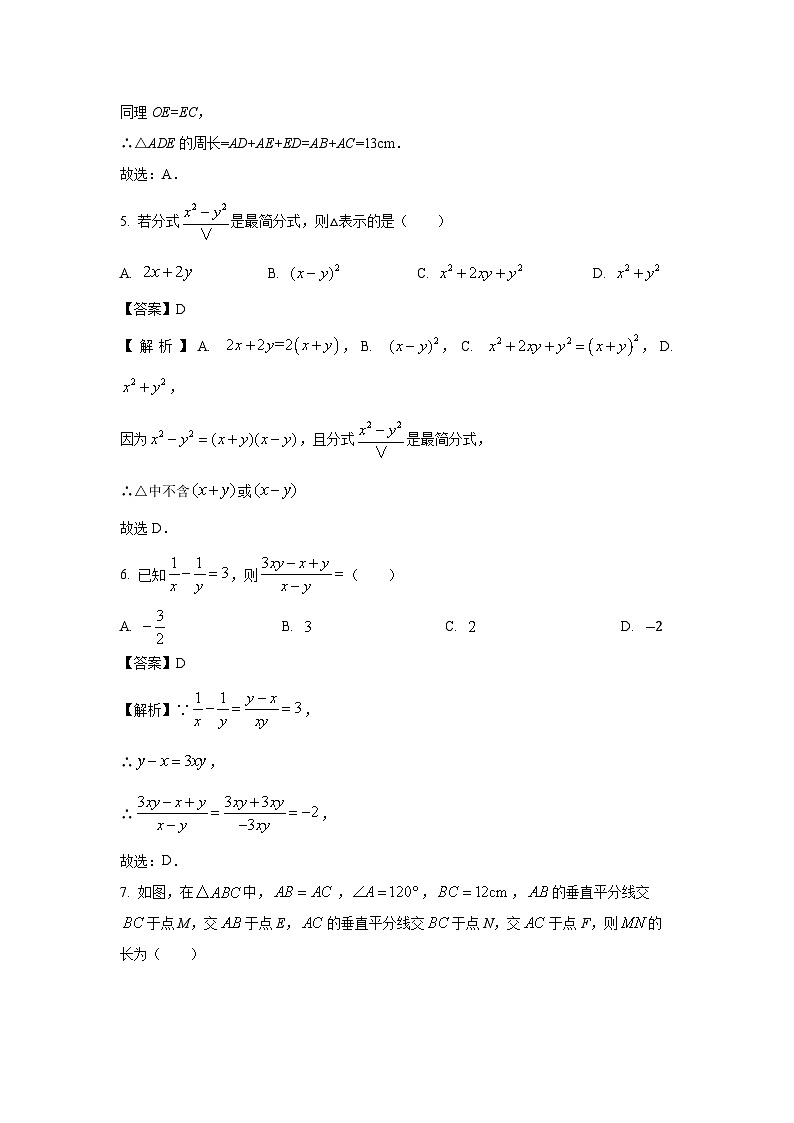 同理 OE=EC，
∴△ADE 的周长=AD+AE+ED=AB+AC=13cm．
故选：A．
5. 若分式 (x² − y²)/▽ 是最简分式，则△表示的是（　　）
A. 2x + 2y　B. (x − y)²　C. x² + 2xy + y²　D. x² + y²
【答案】D
【解析】A. 2x + 2y=2(x + y)，B. (x − y)²，C. x² + 2xy + y² = (x + y)²，D.
x² + y²，
因为 x² − y² = (x + y)(x − y)，且分式 (x² − y²)/▽ 是最简分式，
∴△中不含(x + y)或(x − y)
故选 D．
6. 已知 1/x − 1/y = 3，则 (3xy − x + y)/(x − y) =（　　）
A. −3/2　B. 3　C. 2　D. −2
【答案】D
【解析】∵ 1/x − 1/y = (y − x)/xy = 3，
∴ y − x = 3xy，
∴ (3xy − x + y)/(x − y) = (3xy + 3xy)/(−3xy) = −2，
故选：D．
7. 如图，在△ABC中，AB = AC，∠A = 120°，BC = 12cm，AB的垂直平分线交
BC于点 M，交 AB于点 E，AC的垂直平分线交 BC于点 N，交 AC于点 F，则 MN的
长为（　　）